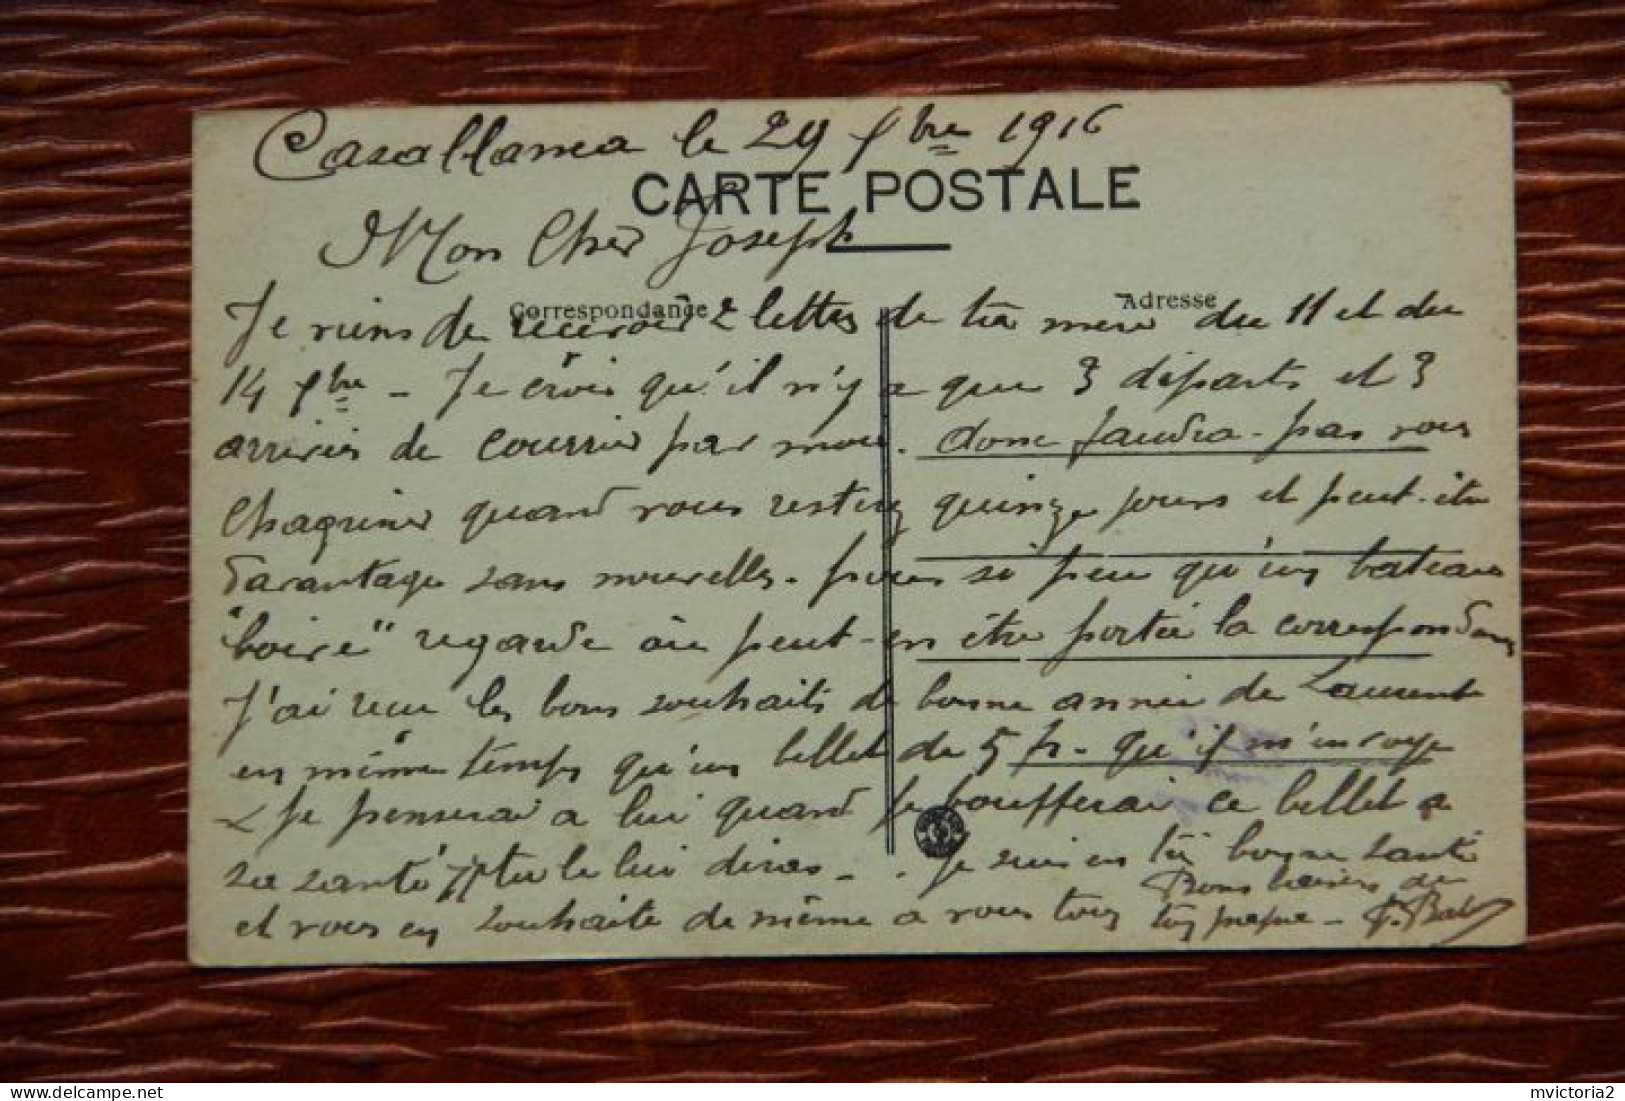 Casablanca le 29 fbre 1916
CARTE POSTALE
Mon Cher Joseph
Correspondance
Adresse
Je viens de recevoir 2 lettres de ta mere du 11 et du
14 fbre - Je crois qu'il n'y a que 3 départs et 3
arrivées de courrier par mois. donc faudra-pas vous
Chagriner quand vous restez quinze jours et peut-être
davantage sans nouvelles. pour si peu qu'un bateau
"boive" regarde où peut-en être portée la correspondance
J'ai reçu les bons souhaits de bonne année de Laurent
en même temps qu'un billet de 5 fr. qu'il m'envoye
& Je penserai a lui quand je boufferai ce billet a
sa santé tu le lui diras - . Je suis en bonne santé
et vous en souhaite de même a vous tous
Bons baisers de
ton papa -
mvictoria2